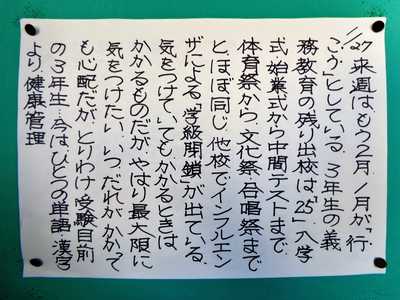 1/27 来週はもう2月.1月が「行
こう」としている.3年生の義
務教育の残り出校は「25」.入学
式.始業式から中間テストまで.
体育祭から.文化祭.合唱祭まで
と、ほぼ同じ.他校でインフルエン
ザによる「学級閉鎖」が出ている.
気をつけていてもかかるときは.
かかるものだが.やはり最大限に
気をつけたい.いつ.だれがかかって
も心配だが.とりわけ.受験目前
の3年生…今はひとつの単語.漢字
より健康管理